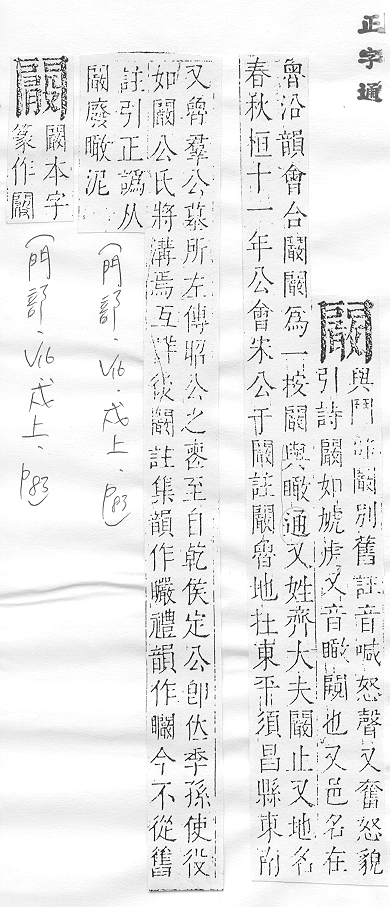 正字通
闞
與鬥部闞別舊註音喊怒聲又奮怒貌
引詩闞如虓虎又音瞰闞也又邑名在
魯沿韻會合闞闞為一按闞與瞰通又姓齊大夫闞止又地名
春秋桓十一年公會宋公于闞註闞魯地在東平須昌縣東南
又魯羣公墓所左傳昭公之喪至自乾侯定公卽位季孫使役
如闞公氏將溝焉互詳後闞註集韻作矙禮韻作矙今不從舊
註引正譌从
闞廢瞰泥
(門部、V16、戌上、P83)
闞
闞本字
篆作闞
(門部、V16、戌上、P83)